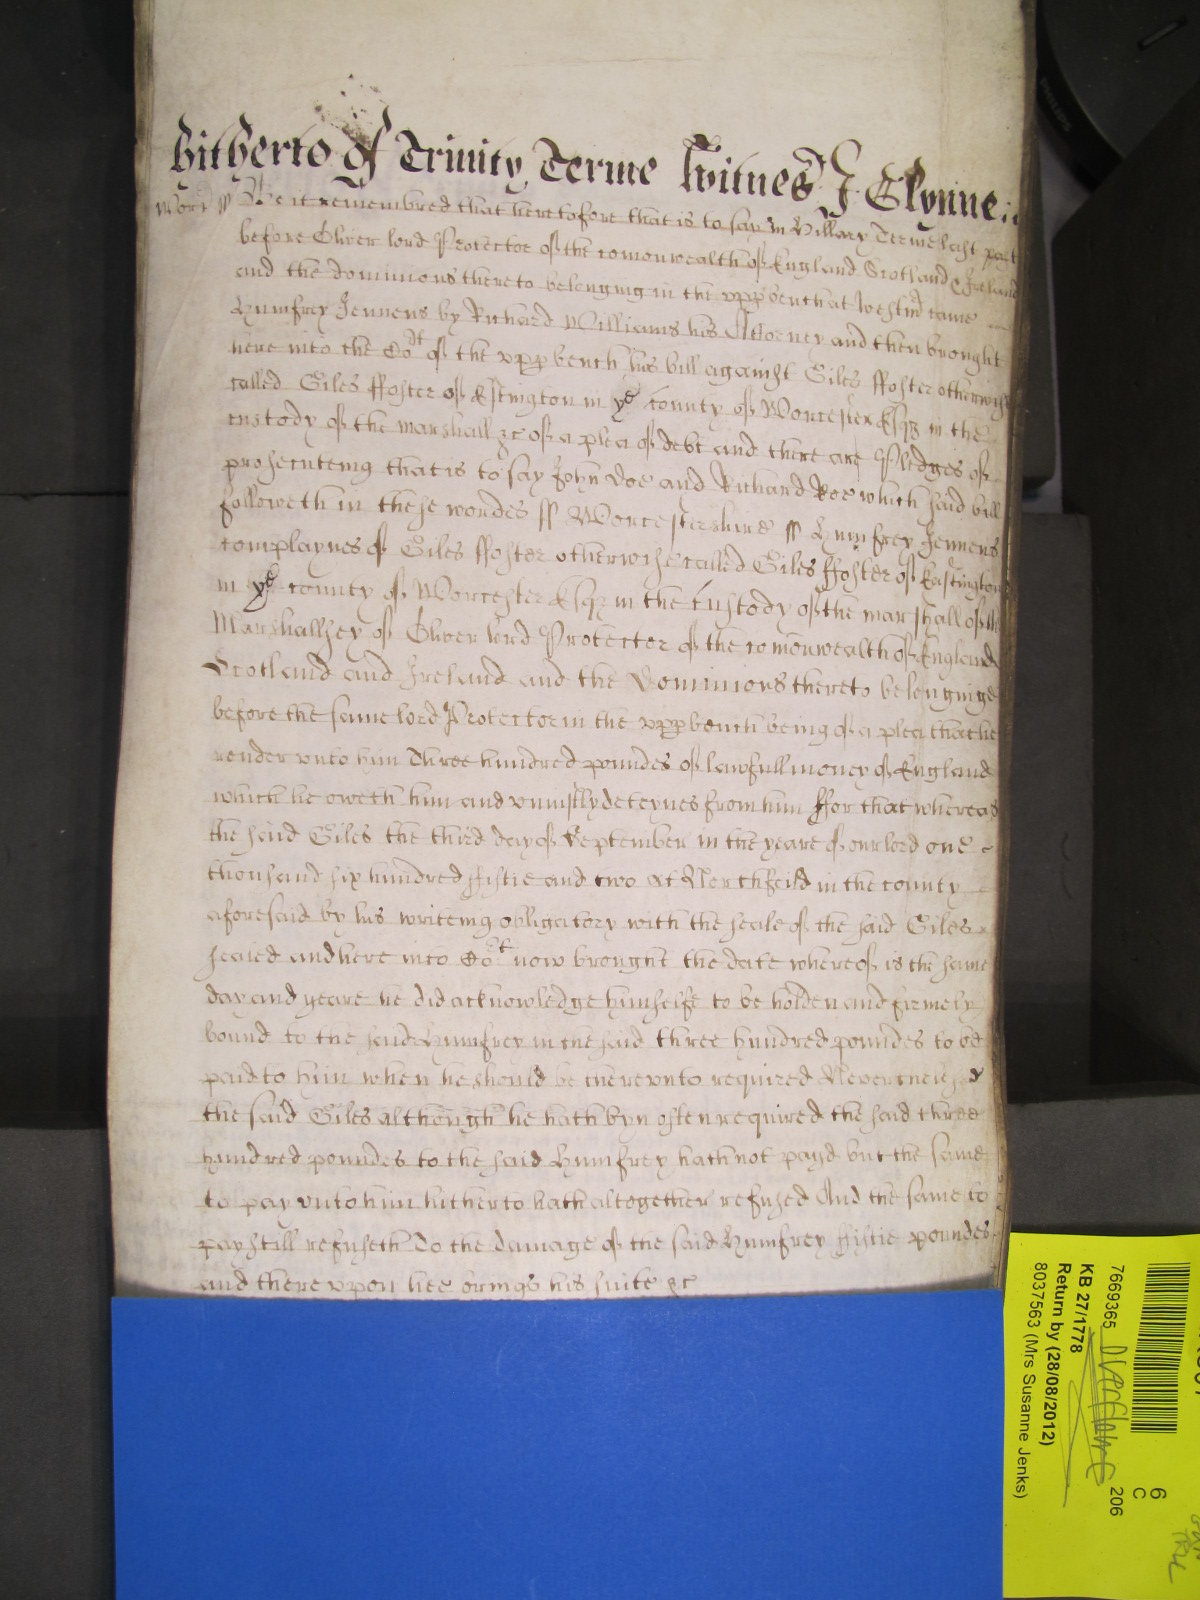 hitherto of Trinity Terme Witnes J Glynne
Worc ss Be it remembred that heretofore that is to say in Hillary Terme last past
before Oliver lord Protector of the comonwealth of England Scotland & Ireland
and the dominions thereto belonging in the vpp bench at Westm came
Humfrey Jennens by Richard Williams his Attorney and then brought
here into the Cort of the vpp bench his bill against Giles ffoster otherwise
called Giles ffoster of Estington in ye county of Worcester Esqr in the
custody of the marshall &c of a plea of debt and there are Pledges of
prosecuteing that is to say John Doe and Richard Roe which said bill
followeth in these wordes ss Worcestershire ss Humfrey Jennens
complaynes of Giles ffoster otherwise called Giles ffoster of Eastington
in ye county of Worcester Esqr in the Custody of the marshall of the
Marshallsey of Oliver lord Protector of the comonwealth of England
Scotland and Ireland and the Dominions thereto belonginge
before the same lord Protector in the vpp bench being of a plea that he
render vnto him Three hundred poundes of lawfull money of England
which he oweth him and vniustly deteynes from him ffor that whereas
the said Giles the third day of September in the yeare of our lord one
thousand six hundred ffiftie and two at Northfeild in the county
aforesaid by his writeing obligatory with the seale of the said Giles
sealed and here into Cort now brought the date whereof is the same
day and yeare he did acknowledge himselfe to be holden and firmely
bound to the said Humfrey in the said three hundred poundes to be
paid to him when he should be therevnto required Neverthelesse
the said Giles although he hath byn often required the said three
hundred poundes to the said Humfrey hath not payd but the same
to pay vnto him hitherto hath altogether refused And the same to
pay still refuseth To the damage of the said Humfrey ffiftie poundes
and there vpon hee brings his suite &c
7669365
KB 27/1778
Return by (28/08/2012)
8037563 (Mrs Susanne Jenks)
206
6
C